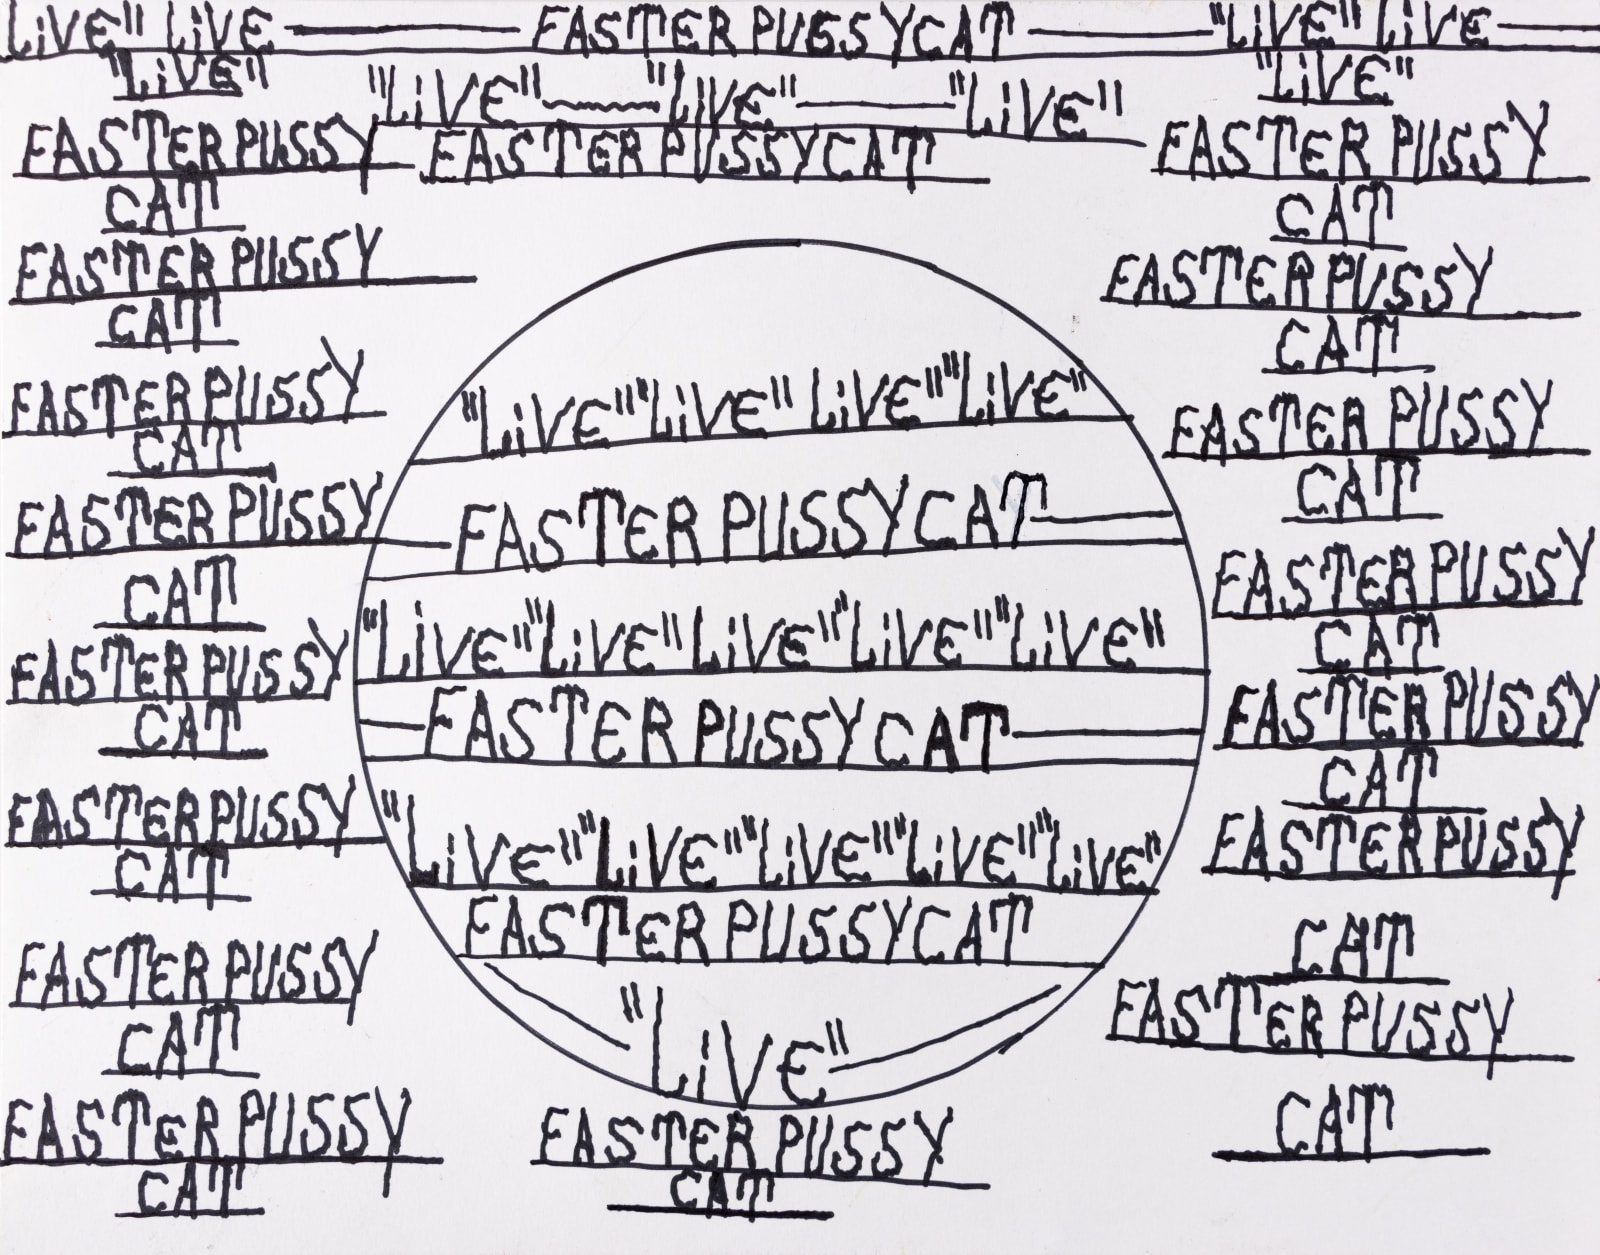 LiVE" LiVE FASTER PUSSYCAT "LiVE" LiVE
"LiVE"
FASTER PUSSY
CAT
FASTER PUSSY
CAT
FASTER PUSSY
CAT
FASTER PUSSY
CAT
FASTER PUSSY
CAT
FASTER PUSSY
CAT
FASTER PUSSY
CAT
FASTER PUSSY
CAT
"LiVE" "LiVE" "LiVE"
FASTER PUSSYCAT
"LiVE" "LiVE" LiVE" "LiVE"
FASTER PUSSYCAT
"LiVE" "LiVE" LiVE" "LiVE" "LiVE"
FASTER PUSSYCAT
"LiVE" "LiVE" "LiVE" "LiVE" "LiVE"
FASTER PUSSYCAT
"LiVE"
FASTER PUSSY
CAT
"LiVE"
FASTER PUSSY
CAT
FASTER PUSSY
CAT
FASTER PUSSY
CAT
FASTER PUSSY
CAT
FASTER PUSSY
CAT
FASTER PUSSY
CAT
FASTER PUSSY
CAT